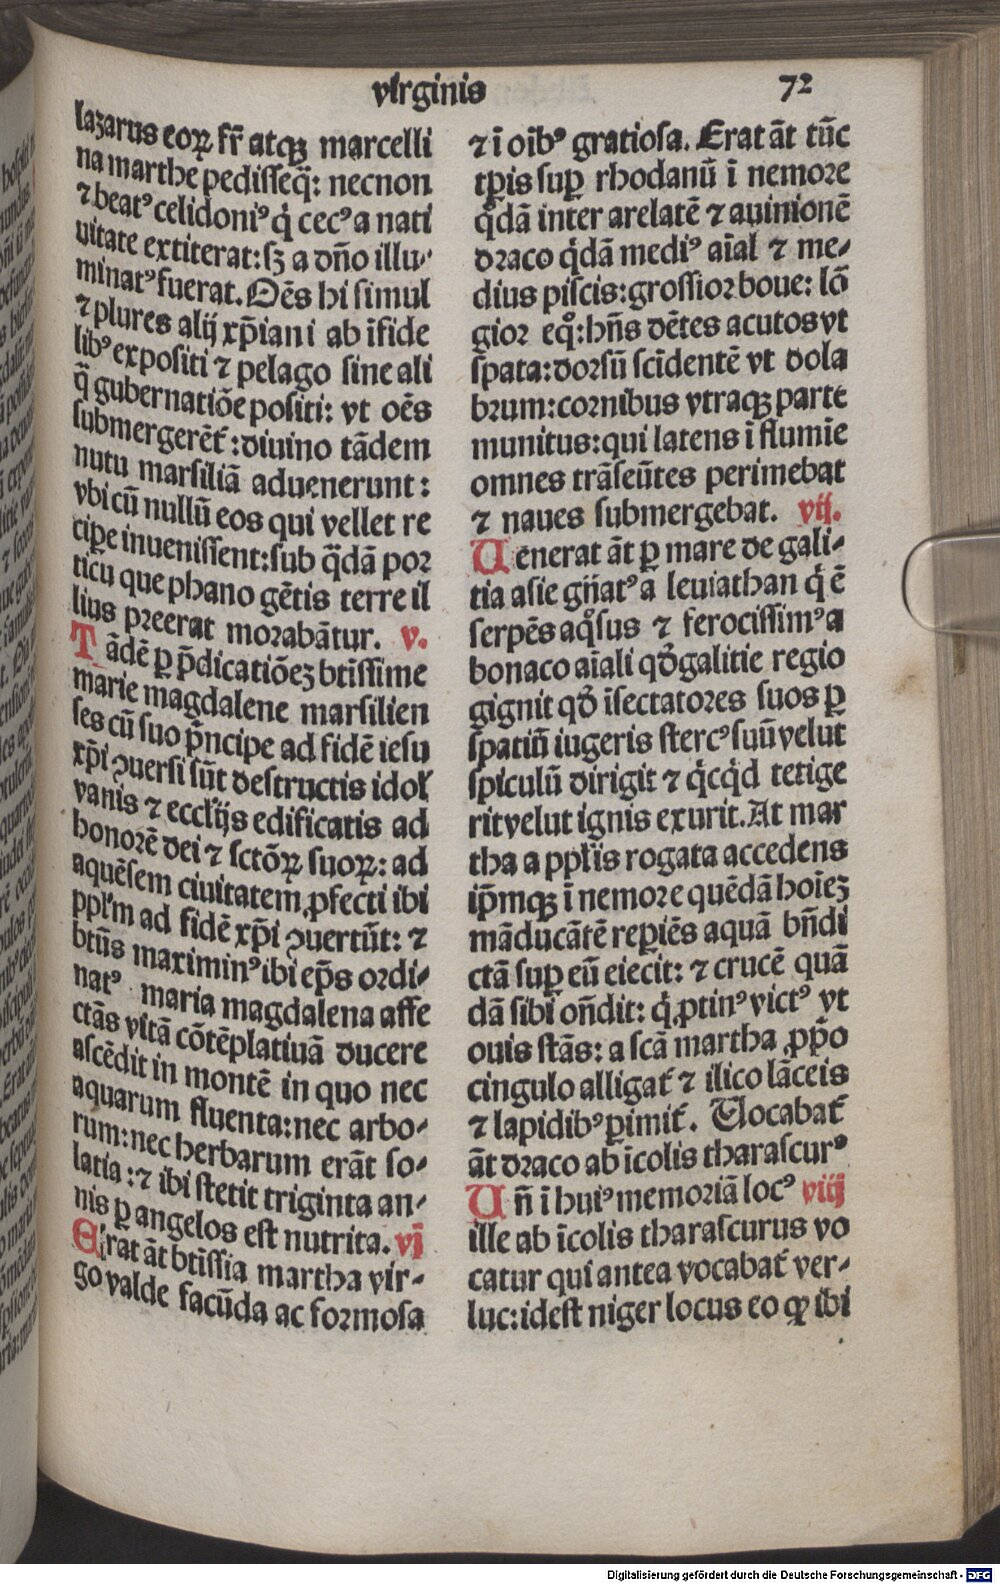 virginis
72
lazarus eoꝝ fr̄ atqꝫ marcelli
na marthe pedisseq̄: necnon
⁊ beatꝰ celidoniꝰ q̇ cecꝰ a nati
uitate extiterat: sꝫ a dn̄o illu-
minatꝰ fuerat. Oēs hi simul
⁊ plures alij xp̄iani ab īfide
libꝰ expositi ⁊ pelago sine ali
q̄ gubernatiōe positi: vt oēs
submergerēt᷑: diuino tādem
nutu marsiliā aduenerunt:
vbi cū nullū eos qui vellet re
cipe inuenissent: sub q̄dā por
ticu que phano gētis terre il
lius preerat morabātur. v.
Tādē ꝑ p̄dicatiōeꝫ btīssime
marie magdalene marsilien
ses cū suo pͥncipe ad fidē iesu
xp̄i ꝯuersi sūt destructis idoł
vanis ⁊ eccłijs edificatis ad
honorē dei ⁊ sctōꝝ suoꝝ: ad
aquēsem ciuitatem ꝓfecti ibi
ppl'm ad fidē xp̄i ꝯuertūt: ⁊
btūs maximinꝰ ibi ep̄s ordi-
natꝰ maria magdalena affe
ctās vitā cōtēplatiuā ducere
ascēdit in montē in quo nec
aquarum fluenta: nec arbo-
rum: nec herbarum erāt so-
latia: ⁊ ibi stetit triginta an-
nis ꝑ angelos est nutrita. vj
Erat āt btīssia martha vir-
go valde facūda ac formosa
⁊ ī oībꝰ gratiosa. Erat āt tūc
tꝑis suꝑ rhodanū ī nemore
q̇dā inter arelatē ⁊ auinionē
draco q̇dā mediꝰ aīal ⁊ me-
dius piscis: grossior boue: lō
gior eqͦ: hn̄s dētes acutos vt
spata: dorsū scīdentē vt dola
brum: cornibus vtraqꝫ parte
munitus: qui latens ī flumīe
omnes trāseūtes perimebat
⁊ naues submergebat. vij.
Uenerat āt ꝑ mare de gali-
tia asie gn̄atꝰ a leuiathan q̇ ē
serpēs aqͦsus ⁊ ferocissimꝰ a
bonaco aīali qd̓ galitie regio
gignit qd̓ īsectatores suos ꝑ
spatiū iugeris stercꝰ suū velut
spiculū dirigit ⁊ q̇cq̇d tetige
rit velut ignis exurit. At mar
tha a ppłis rogata accedens
ip̄mqꝫ ī nemore quēdā hoīeꝫ
māducātē reꝑiēs aquā bn̄di
ctā suꝑ eū eiecit: ⁊ crucē quā
dā sibi on̄dit: q̇ ꝓtinꝰ victꝰ vt
ouis stās: a scā martha ꝓpͦo
cingulo alligat᷑ ⁊ ilico lāceis
⁊ lapidibꝰ ꝑimit᷑. Vocabat᷑
āt draco ab īcolis tharascurꝰ
Un̄ ī huiꝰ memoriā locꝰ viij
ille ab īcolis tharascurus vo
catur qui antea vocabat᷑ ver-
luc: idest niger locus eo ꝙ ibi
Digitalisierung gefördert durch die Deutsche Forschungsgemeinschaft - DFG